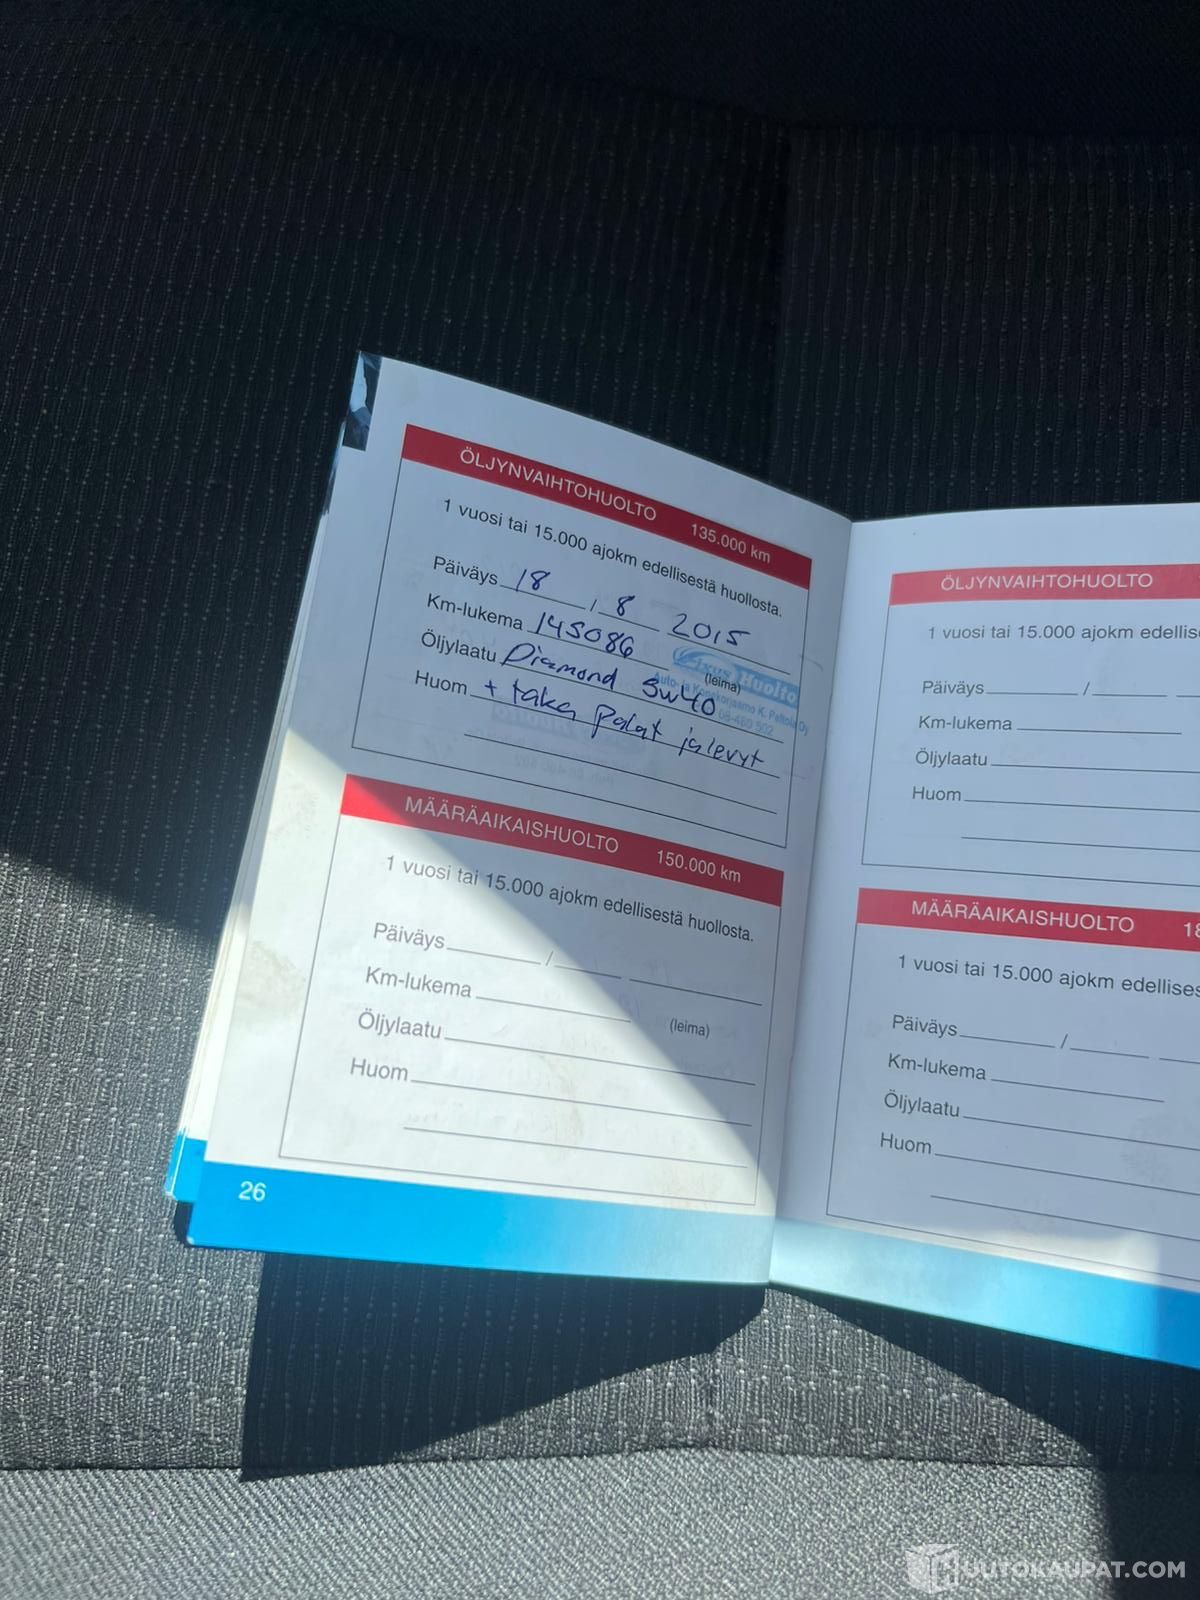 ÖLJYNVAIHTOHUOLTO 135.000 km
1 vuosi tai 15.000 ajokm edellisestä huollosta.
Päiväys 18 / 8 2015
Km-lukema 145086
(leima)
Öljylaatu Diamond 5w40
Huom + taka palat ja levyt
Huolto
Auto- ja Konekorjaamo K. Peltola Oy
MÄÄRÄAIKAISHUOLTO 150.000 km
1 vuosi tai 15.000 ajokm edellisestä huollosta.
Päiväys / 
Km-lukema
(leima)
Öljylaatu
Huom
26
ÖLJYNVAIHTOHUOLTO
1 vuosi tai 15.000 ajokm edellis
Päiväys /
Km-lukema
Öljylaatu
Huom
MÄÄRÄAIKAISHUOLTO 18
1 vuosi tai 15.000 ajokm edellises
Päiväys /
Km-lukema
Öljylaatu
Huom
HUUTOKAUPAT.COM